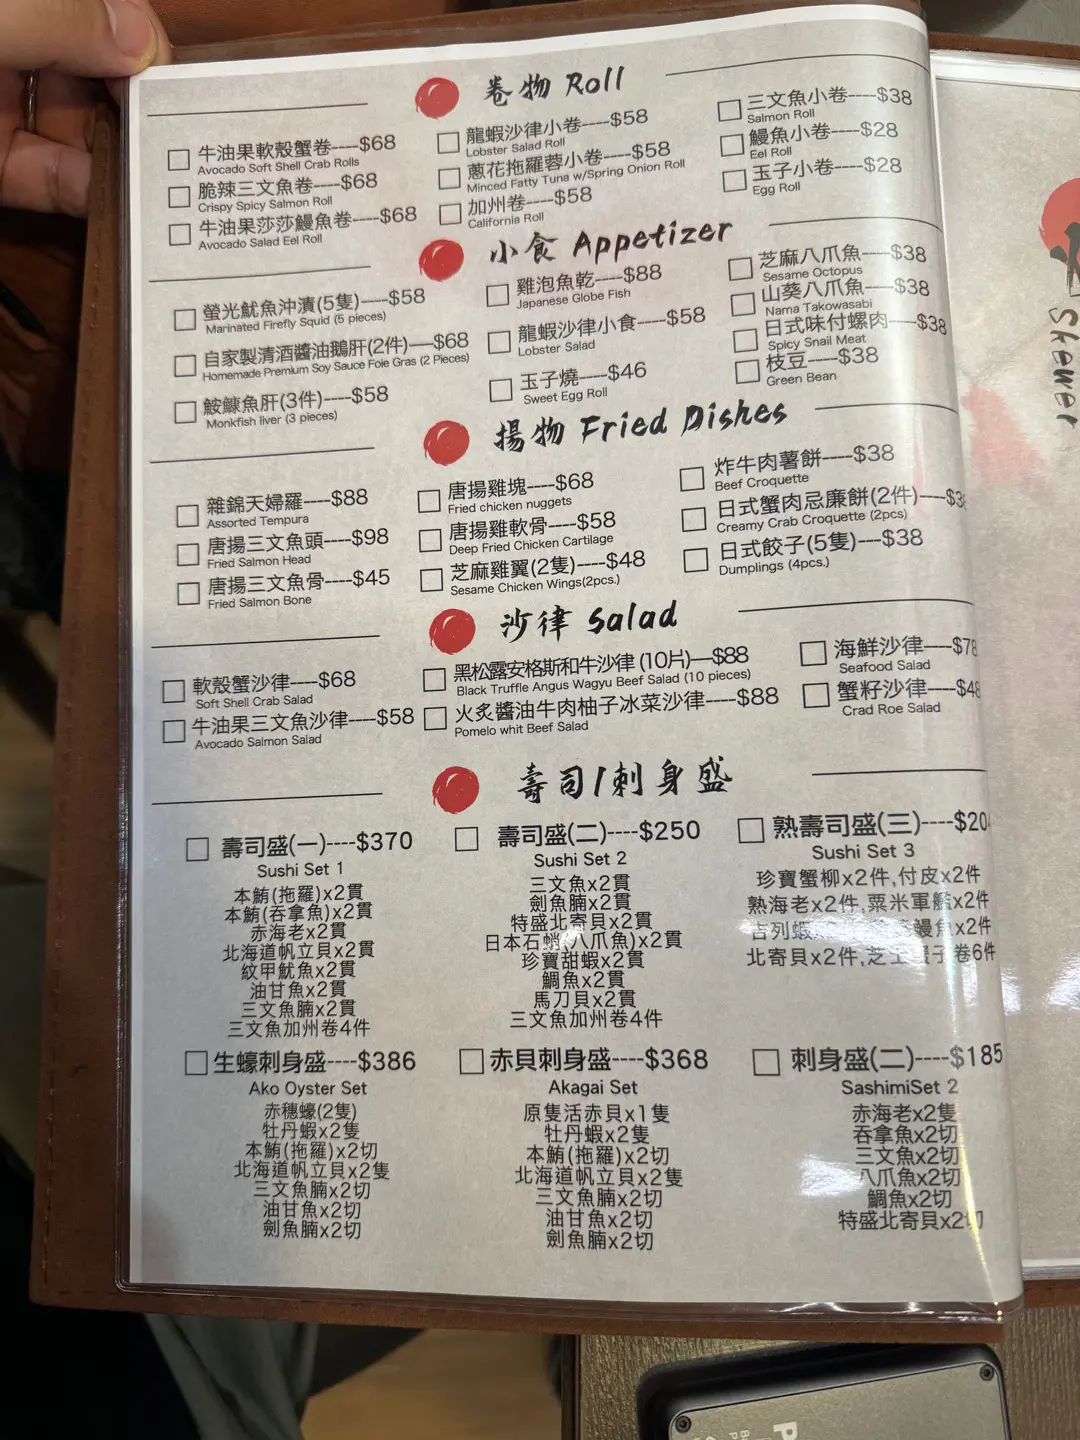 卷物 Roll
牛油果軟殼蟹卷----$68
Avocado Soft Shell Crab Rolls
脆辣三文魚卷----$68
Crispy Spicy Salmon Roll
牛油果莎莎鰻魚卷----$68
Avocado Salad Eel Roll
龍蝦沙律小卷----$58
Lobster Salad Roll
蔥花拖羅蓉小卷----$58
Minced Fatty Tuna w/Spring Onion Roll
加州卷----$58
California Roll
三文魚小卷----$38
Salmon Roll
鰻魚小卷----$28
Eel Roll
玉子小卷----$28
Egg Roll
小食 Appetizer
螢光魷魚沖漬(5隻)----$58
Marinated Firefly Squid (5 pieces)
自家製清酒醬油鵝肝(2件)----$68
Homemade Premium Soy Sauce Foie Gras (2 Pieces)
鮟鱇魚肝(3件)----$58
Monkfish liver (3 pieces)
雞泡魚乾----$88
Japanese Globe Fish
龍蝦沙律小食----$58
Lobster Salad
玉子燒----$46
Sweet Egg Roll
芝麻八爪魚----$38
Sesame Octopus
山葵八爪魚----$38
Nama Takowasabi
日式味付螺肉----$38
Spicy Snail Meat
枝豆----$38
Green Bean
揚物 Fried Dishes
雜錦天婦羅----$88
Assorted Tempura
唐揚三文魚頭----$98
Fried Salmon Head
唐揚三文魚骨----$45
Fried Salmon Bone
唐揚雞塊----$68
Fried chicken nuggets
唐揚雞軟骨----$58
Deep Fried Chicken Cartilage
芝麻雞翼(2隻)----$48
Sesame Chicken Wings(2pcs.)
炸牛肉薯餅----$38
Beef Croquette
日式蟹肉忌廉餅(2件)----$38
Creamy Crab Croquette (2pcs)
日式餃子(5隻)---$38
Dumplings (4pcs.)
沙律 Salad
軟殼蟹沙律----$68
Soft Shell Crab Salad
牛油果三文魚沙律----$58
Avocado Salmon Salad
黑松露安格斯和牛沙律 (10片)----$88
Black Truffle Angus Wagyu Beef Salad (10 pieces)
火炙醬油牛肉柚子冰菜沙律----$88
Pomelo whit Beef Salad
海鮮沙律----$78
Seafood Salad
蟹籽沙律----$48
Crad Roe Salad
壽司/刺身盛
壽司盛(一)----$370
Sushi Set 1
本鮪(拖羅)x2貫
本鮪(吞拿魚)x2貫
赤海老x2貫
北海道帆立貝x2貫
紋甲魷魚x2貫
油甘魚x2貫
三文魚腩x2貫
三文魚加州卷4件
壽司盛(二)----$250
Sushi Set 2
三文魚x2貫
劍魚腩x2貫
特盛北寄貝x2貫
日本石蛸(八爪魚)x2貫
珍寶甜蝦x2貫
鯛魚x2貫
馬刀貝x2貫
三文魚加州卷4件
熟壽司盛(三)----$204
Sushi Set 3
珍寶蟹柳x2件,付皮x2件
熟海老x2件,粟米軍艦x2件
吉列蝦 鰻魚x2件
北寄貝x2件,芝 子卷6件
生蠔刺身盛----$386
Ako Oyster Set
赤穗蠔(2隻)
牡丹蝦x2隻
本鮪(拖羅)x2切
北海道帆立貝x2隻
三文魚腩x2切
油甘魚x2切
劍魚腩x2切
赤貝刺身盛----$368
Akagai Set
原隻活赤貝x1隻
牡丹蝦x2隻
本鮪(拖羅)x2切
北海道帆立貝x2隻
三文魚腩x2切
油甘魚x2切
劍魚腩x2切
刺身盛(二)----$185
SashimiSet 2
赤海老x2隻
吞拿魚x2切
三文魚x2切
八爪魚x2切
鯛魚x2切
特盛北寄貝x2切
Skewer